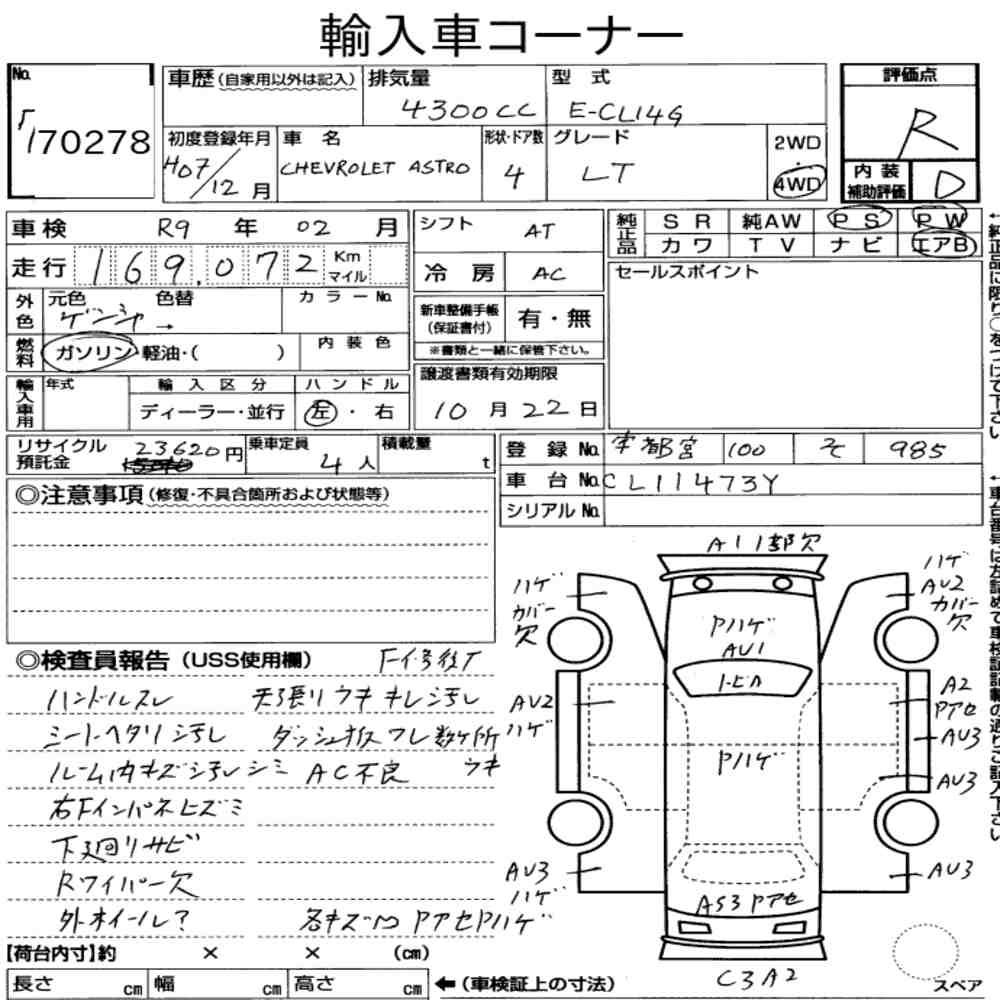 輸入車コーナー
No. 170278
車歴(自家用以外は記入) 排気量 4300CC 型式 E-CL14G
評価点 R
初度登録年月 H07/12月 車名 CHEVROLET ASTRO 形状・ドア数 4 グレード LT 2WD・4WD
内装補助評価 D
車検 R9年02月 シフト AT 純正品 SR 純AW PS PW
カワ TV ナビ エアB
走行 169,072 Km マイル 冷房 AC セールスポイント
外色 元色 色替 カラーNo. 新車整備手帳(保証書付) 有・無
ゲンシャ→ ※書類と一緒に保管下さい。
燃料 ガソリン・軽油・( ) 内装色
譲渡書類有効期限 10月22日
輸入車用 年式 輸入区分 ハンドル
ディーラー・並行 左・右
リサイクル預託金 23620円 乗車定員 4人 積載量 t
登録No. 宇都宮 100 そ 985
車台No. CL11473Y
シリアルNo.
◎注意事項(修復・不具合箇所および状態等)
◎検査員報告(USS使用欄)
ハンドルスレ 天張りウキキレシ汚レ
シートヘタリシ汚レ ダッシュ状フレ数ケ所
ルーム内キズシ汚レシミ AC不良 ウキ
右Fインパネヒズミ
下廻リサビ
Rワイパー欠
外ホイール? 各キズ凹PアセPハゲ
A11部欠
ハゲ カバー欠
ハゲ AU2 カバー欠
Pハゲ
AU1
トビハ
AU2 ハゲ
A2 Pアセ
AU3
Pハゲ
AU3
AU3 ハゲ
AU3
AS3 Pアセ
C3A2
スペア
【荷台内寸】約 × × (cm)
長さ cm 幅 cm 高さ cm ←(車検証上の寸法)
←純正品に限り○をつけて下さい
←車台番号は左詰めで車検証記載の通りご記入下さい